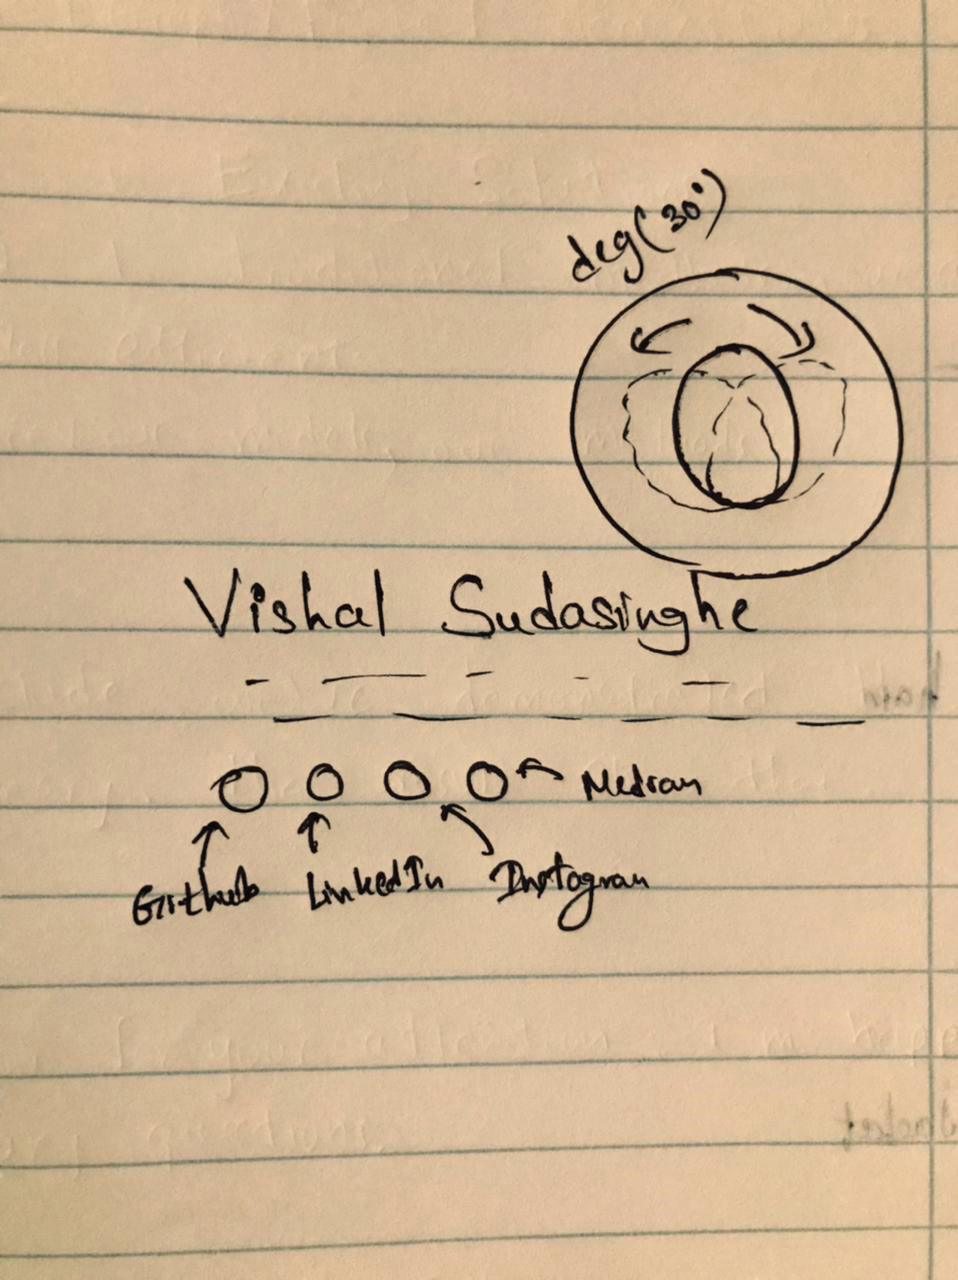 deg(30°)
Vishal Sudasinghe
Medium
Github LinkedIn Instagram